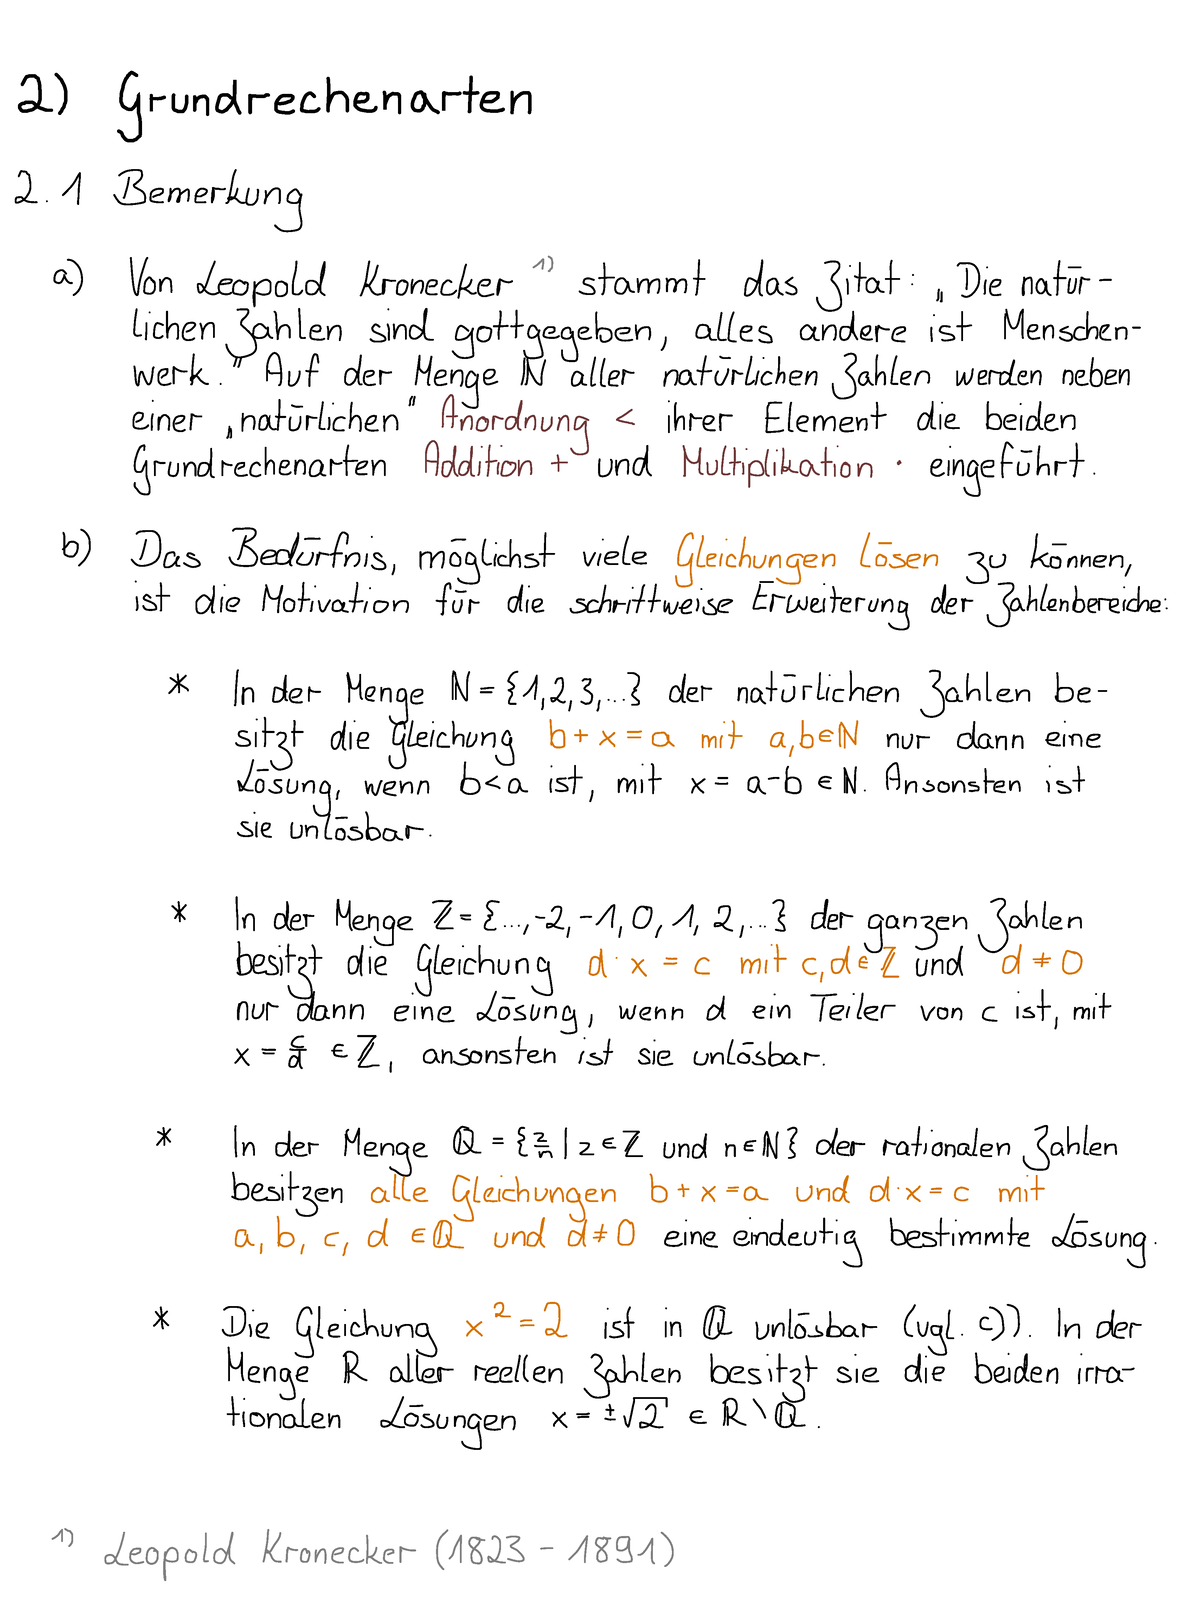 2) Grundrechenarten
2.1 Bemerkung
a) Von Leopold Kronecker ¹⁾ stammt das Zitat: „Die natür-
lichen Zahlen sind gottgegeben, alles andere ist Menschen-
werk." Auf der Menge ℕ aller natürlichen Zahlen werden neben
einer „natürlichen" Anordnung < ihrer Element die beiden
Grundrechenarten Addition + und Multiplikation · eingeführt.
b) Das Bedürfnis, möglichst viele Gleichungen lösen zu können,
ist die Motivation für die schrittweise Erweiterung der Zahlenbereiche:
* In der Menge ℕ = {1,2,3,...} der natürlichen Zahlen be-
sitzt die Gleichung b + x = a mit a,b ∈ ℕ nur dann eine
Lösung, wenn b < a ist, mit x = a-b ∈ ℕ. Ansonsten ist
sie unlösbar.
* In der Menge ℤ = {...,-2,-1,0,1,2,...} der ganzen Zahlen
besitzt die Gleichung d · x = c mit c,d ∈ ℤ und d ≠ 0
nur dann eine Lösung, wenn d ein Teiler von c ist, mit
x = c/d ∈ ℤ, ansonsten ist sie unlösbar.
* In der Menge ℚ = {z/n | z ∈ ℤ und n ∈ ℕ} der rationalen Zahlen
besitzen alle Gleichungen b + x = a und d · x = c mit
a, b, c, d ∈ ℚ und d ≠ 0 eine eindeutig bestimmte Lösung.
* Die Gleichung x² = 2 ist in ℚ unlösbar (vgl. c)). In der
Menge ℝ aller reellen Zahlen besitzt sie die beiden irra-
tionalen Lösungen x = ±√2 ∈ ℝ \ ℚ.
¹⁾ Leopold Kronecker (1823 - 1891)